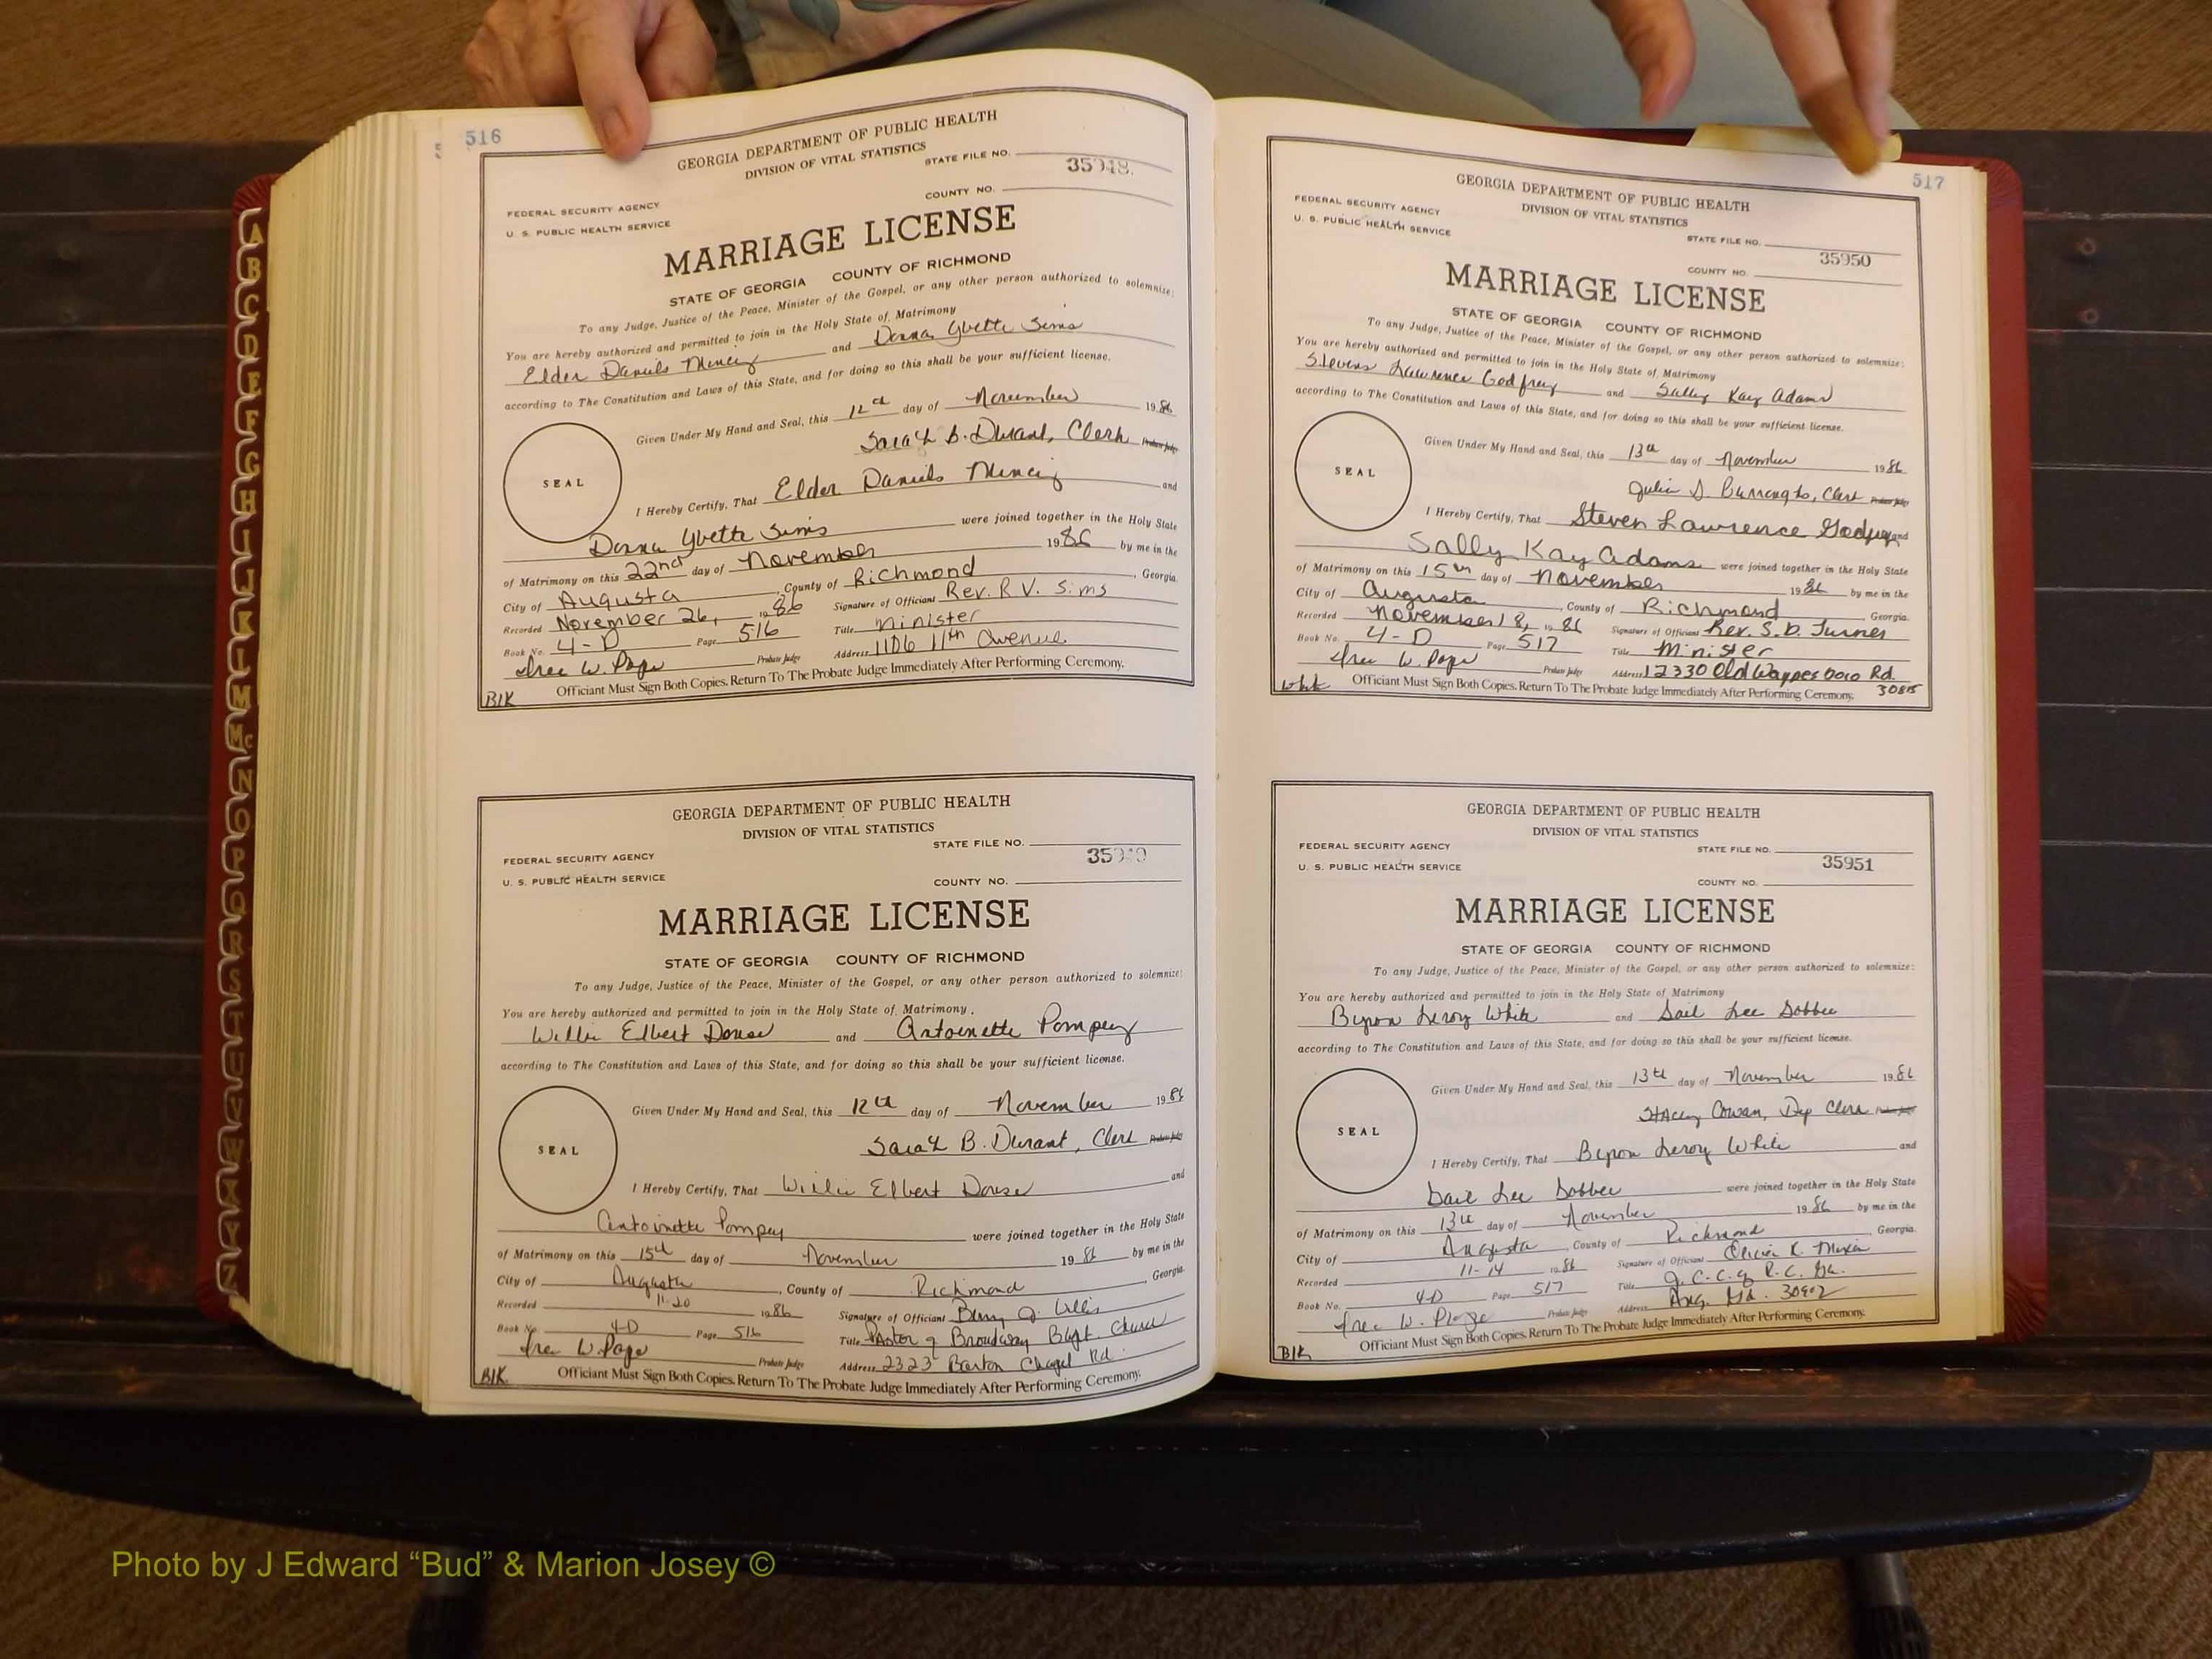 516
GEORGIA DEPARTMENT OF PUBLIC HEALTH
DIVISION OF VITAL STATISTICS
STATE FILE NO.
COUNTY NO.
FEDERAL SECURITY AGENCY
U. S. PUBLIC HEALTH SERVICE
MARRIAGE LICENSE
STATE OF GEORGIA COUNTY OF RICHMOND
To any Judge, Justice of the Peace, Minister of the Gospel, or any other person authorized to solemnize:
You are hereby authorized and permitted to join in the Holy State of Matrimony
Elder Daniels and Donna Yvette Sims
according to The Constitution and Laws of this State, and for doing so this shall be your sufficient license.
Given Under My Hand and Seal, this 12th day of November 1986
SEAL
Sarah B. Durant, Clerk Probate Judge
I Hereby Certify, That Elder Daniels and
Donna Yvette Sims were joined together in the Holy State
of Matrimony on this 22nd day of November 1986 by me in the
City of Augusta, County of Richmond, Georgia.
Recorded November 26, 1986 Signature of Officiant Rev. R.V. Sims
Book No. 4-D Page 516 Title Minister
W. Pope Probate Judge Address 1106 11th Avenue
Officiant Must Sign Both Copies. Return To The Probate Judge Immediately After Performing Ceremony.
Blk
GEORGIA DEPARTMENT OF PUBLIC HEALTH
DIVISION OF VITAL STATISTICS
STATE FILE NO.
FEDERAL SECURITY AGENCY
U. S. PUBLIC HEALTH SERVICE
COUNTY NO.
MARRIAGE LICENSE
STATE OF GEORGIA COUNTY OF RICHMOND
To any Judge, Justice of the Peace, Minister of the Gospel, or any other person authorized to solemnize:
You are hereby authorized and permitted to join in the Holy State of Matrimony.
Willie Elbert and Antoinette Pompey
according to The Constitution and Laws of this State, and for doing so this shall be your sufficient license.
Given Under My Hand and Seal, this 12th day of November 1986
SEAL
Sarah B. Durant, Clerk Probate Judge
I Hereby Certify, That Willie Elbert and
Antoinette Pompey were joined together in the Holy State
of Matrimony on this 15th day of November 1986 by me in the
City of Augusta, County of Richmond, Georgia.
Recorded 11-20 1986 Signature of Officiant
Book No. 4D Page 516 Title Pastor of Broadway Bapt. Church
W. Pope Probate Judge Address 2323 Barton Chapel Rd.
Officiant Must Sign Both Copies. Return To The Probate Judge Immediately After Performing Ceremony.
Blk.
517
GEORGIA DEPARTMENT OF PUBLIC HEALTH
DIVISION OF VITAL STATISTICS
FEDERAL SECURITY AGENCY
U. S. PUBLIC HEALTH SERVICE
STATE FILE NO. 35950
COUNTY NO.
MARRIAGE LICENSE
STATE OF GEORGIA COUNTY OF RICHMOND
To any Judge, Justice of the Peace, Minister of the Gospel, or any other person authorized to solemnize:
You are hereby authorized and permitted to join in the Holy State of Matrimony
Stevens Lawrence Godfrey and Sally Kay Adams
according to The Constitution and Laws of this State, and for doing so this shall be your sufficient license.
Given Under My Hand and Seal, this 13th day of November 1986
SEAL
Julia D. Burroughs, Clerk Probate Judge
I Hereby Certify, That Steven Lawrence Godfrey and
Sally Kay Adams were joined together in the Holy State
of Matrimony on this 15th day of November 1986 by me in the
City of Augusta, County of Richmond Georgia.
Recorded November 18, 1986 Signature of Officiant Rev. S.D. Turner
Book No. 4-D Page 517 Title Minister
W. Pope Probate Judge Address 12330 Old Waynesboro Rd.
Officiant Must Sign Both Copies. Return To The Probate Judge Immediately After Performing Ceremony. 30815
GEORGIA DEPARTMENT OF PUBLIC HEALTH
DIVISION OF VITAL STATISTICS
FEDERAL SECURITY AGENCY
STATE FILE NO. 35951
U. S. PUBLIC HEALTH SERVICE
COUNTY NO.
MARRIAGE LICENSE
STATE OF GEORGIA COUNTY OF RICHMOND
To any Judge, Justice of the Peace, Minister of the Gospel, or any other person authorized to solemnize:
You are hereby authorized and permitted to join in the Holy State of Matrimony
Byron Leroy White and Gail Lee
according to The Constitution and Laws of this State, and for doing so this shall be your sufficient license.
Given Under My Hand and Seal, this 13th day of November 1986
SEAL
Stacey Cowan, Dep Clerk Probate Judge
I Hereby Certify, That Byron Leroy White and
Gail Lee were joined together in the Holy State
of Matrimony on this 13th day of November 1986 by me in the
City of Augusta, County of Richmond, Georgia.
Recorded 11-14 1986 Signature of Officiant
Book No. 4D Page 517 Title
W. Pope Probate Judge Address Aug. Ga. 30902
Officiant Must Sign Both Copies. Return To The Probate Judge Immediately After Performing Ceremony.
Blk
A
B
C
D
E
F
G
H
I
J
K
L
M
Mc
N
O
P
Q
R
S
T
U
V
W
X
Y
Z
Photo by J Edward “Bud” & Marion Josey ©